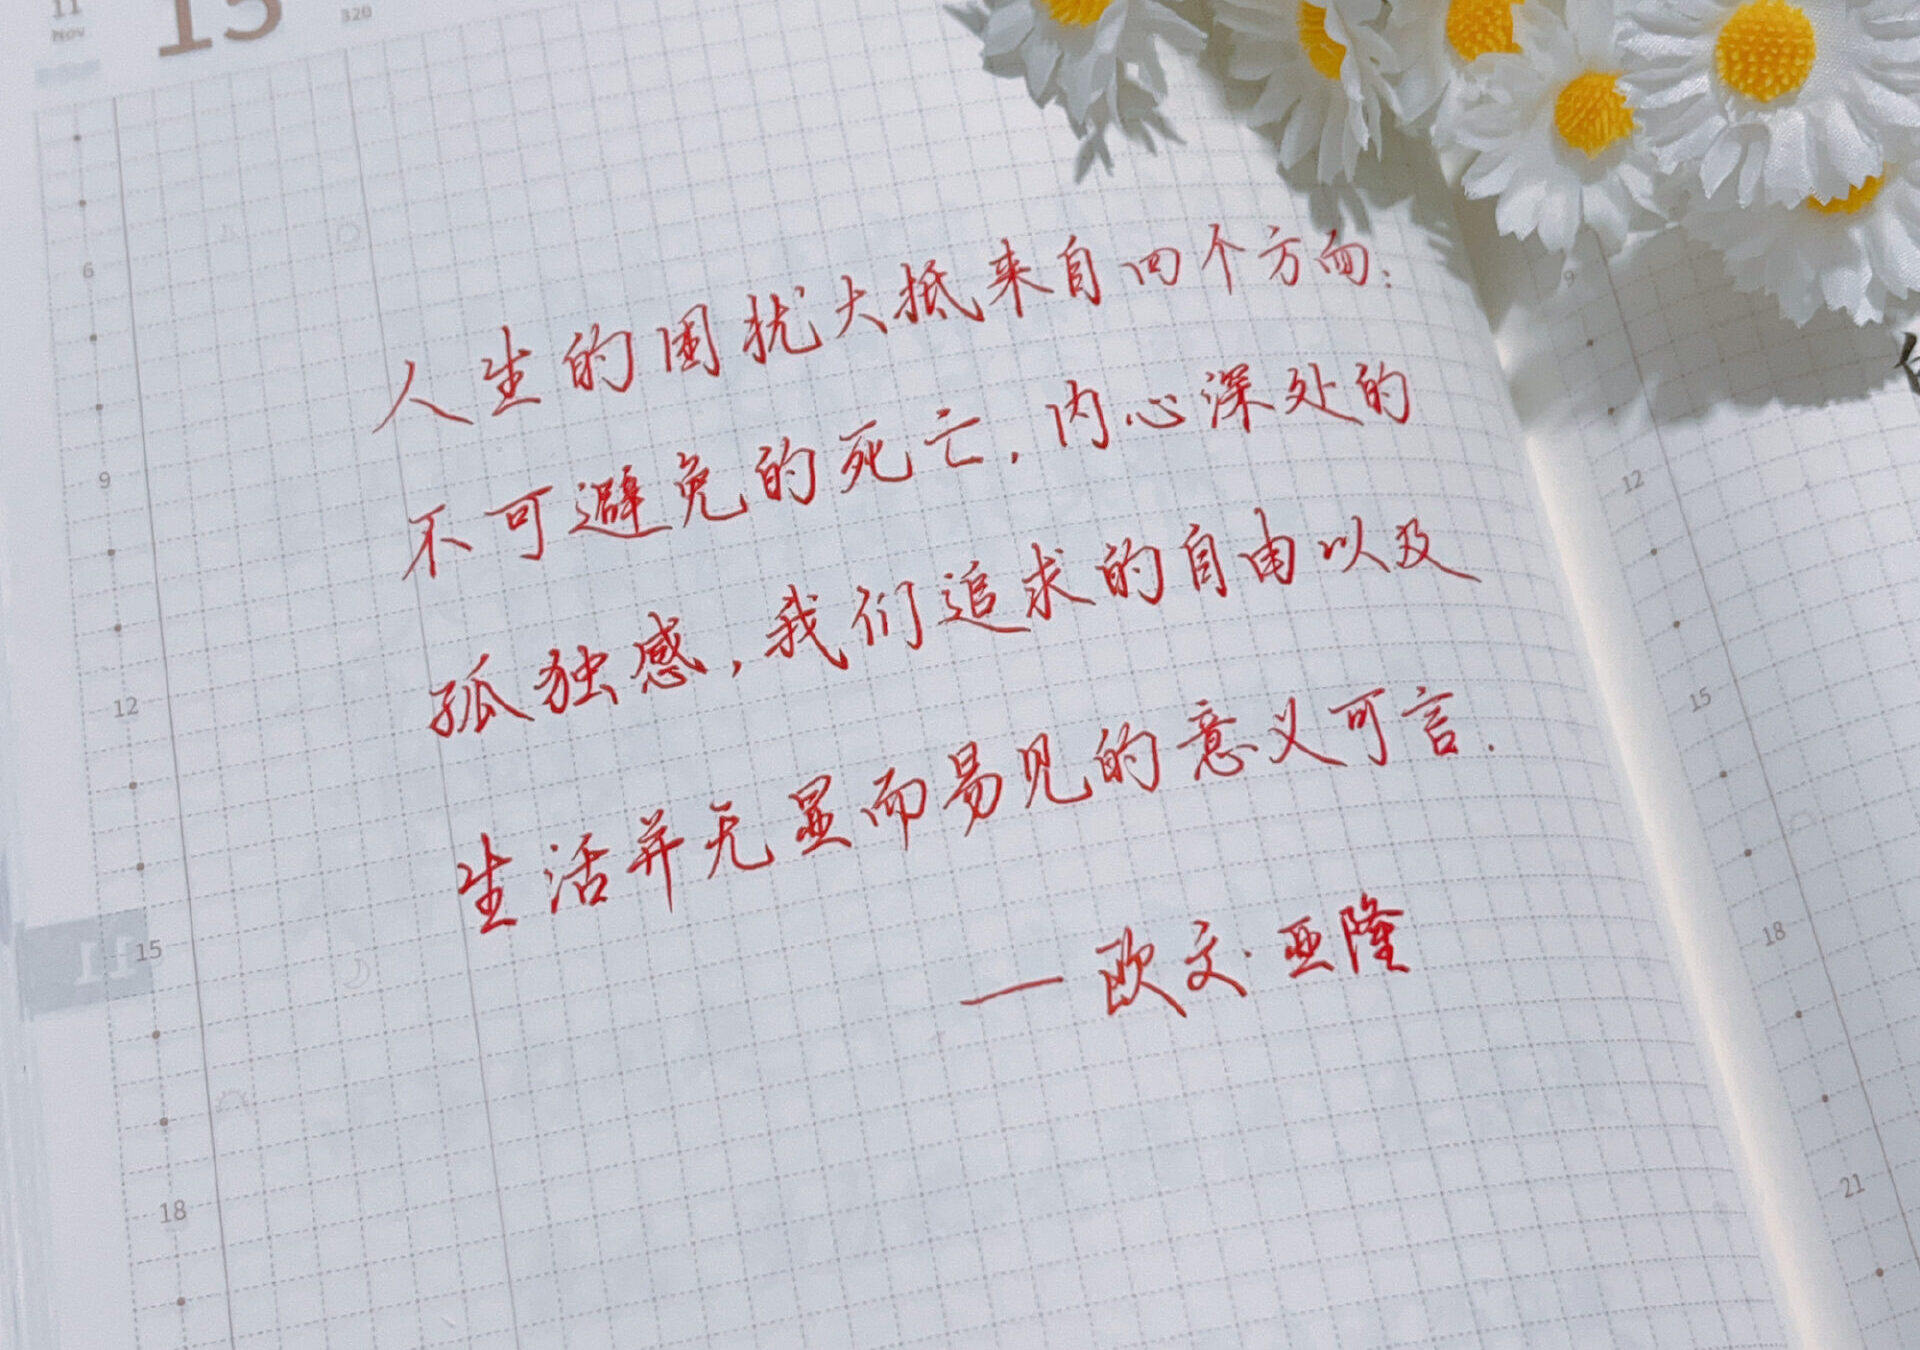 11
Nov
15
320
人生的困扰大抵来自四个方面:
不可避免的死亡.内心深处的
孤独感,我们追求的自由以及
生活并无显而易见的意义可言.
—欧文·亚隆
6
9
12
15
18
11
9
12
15
18
21